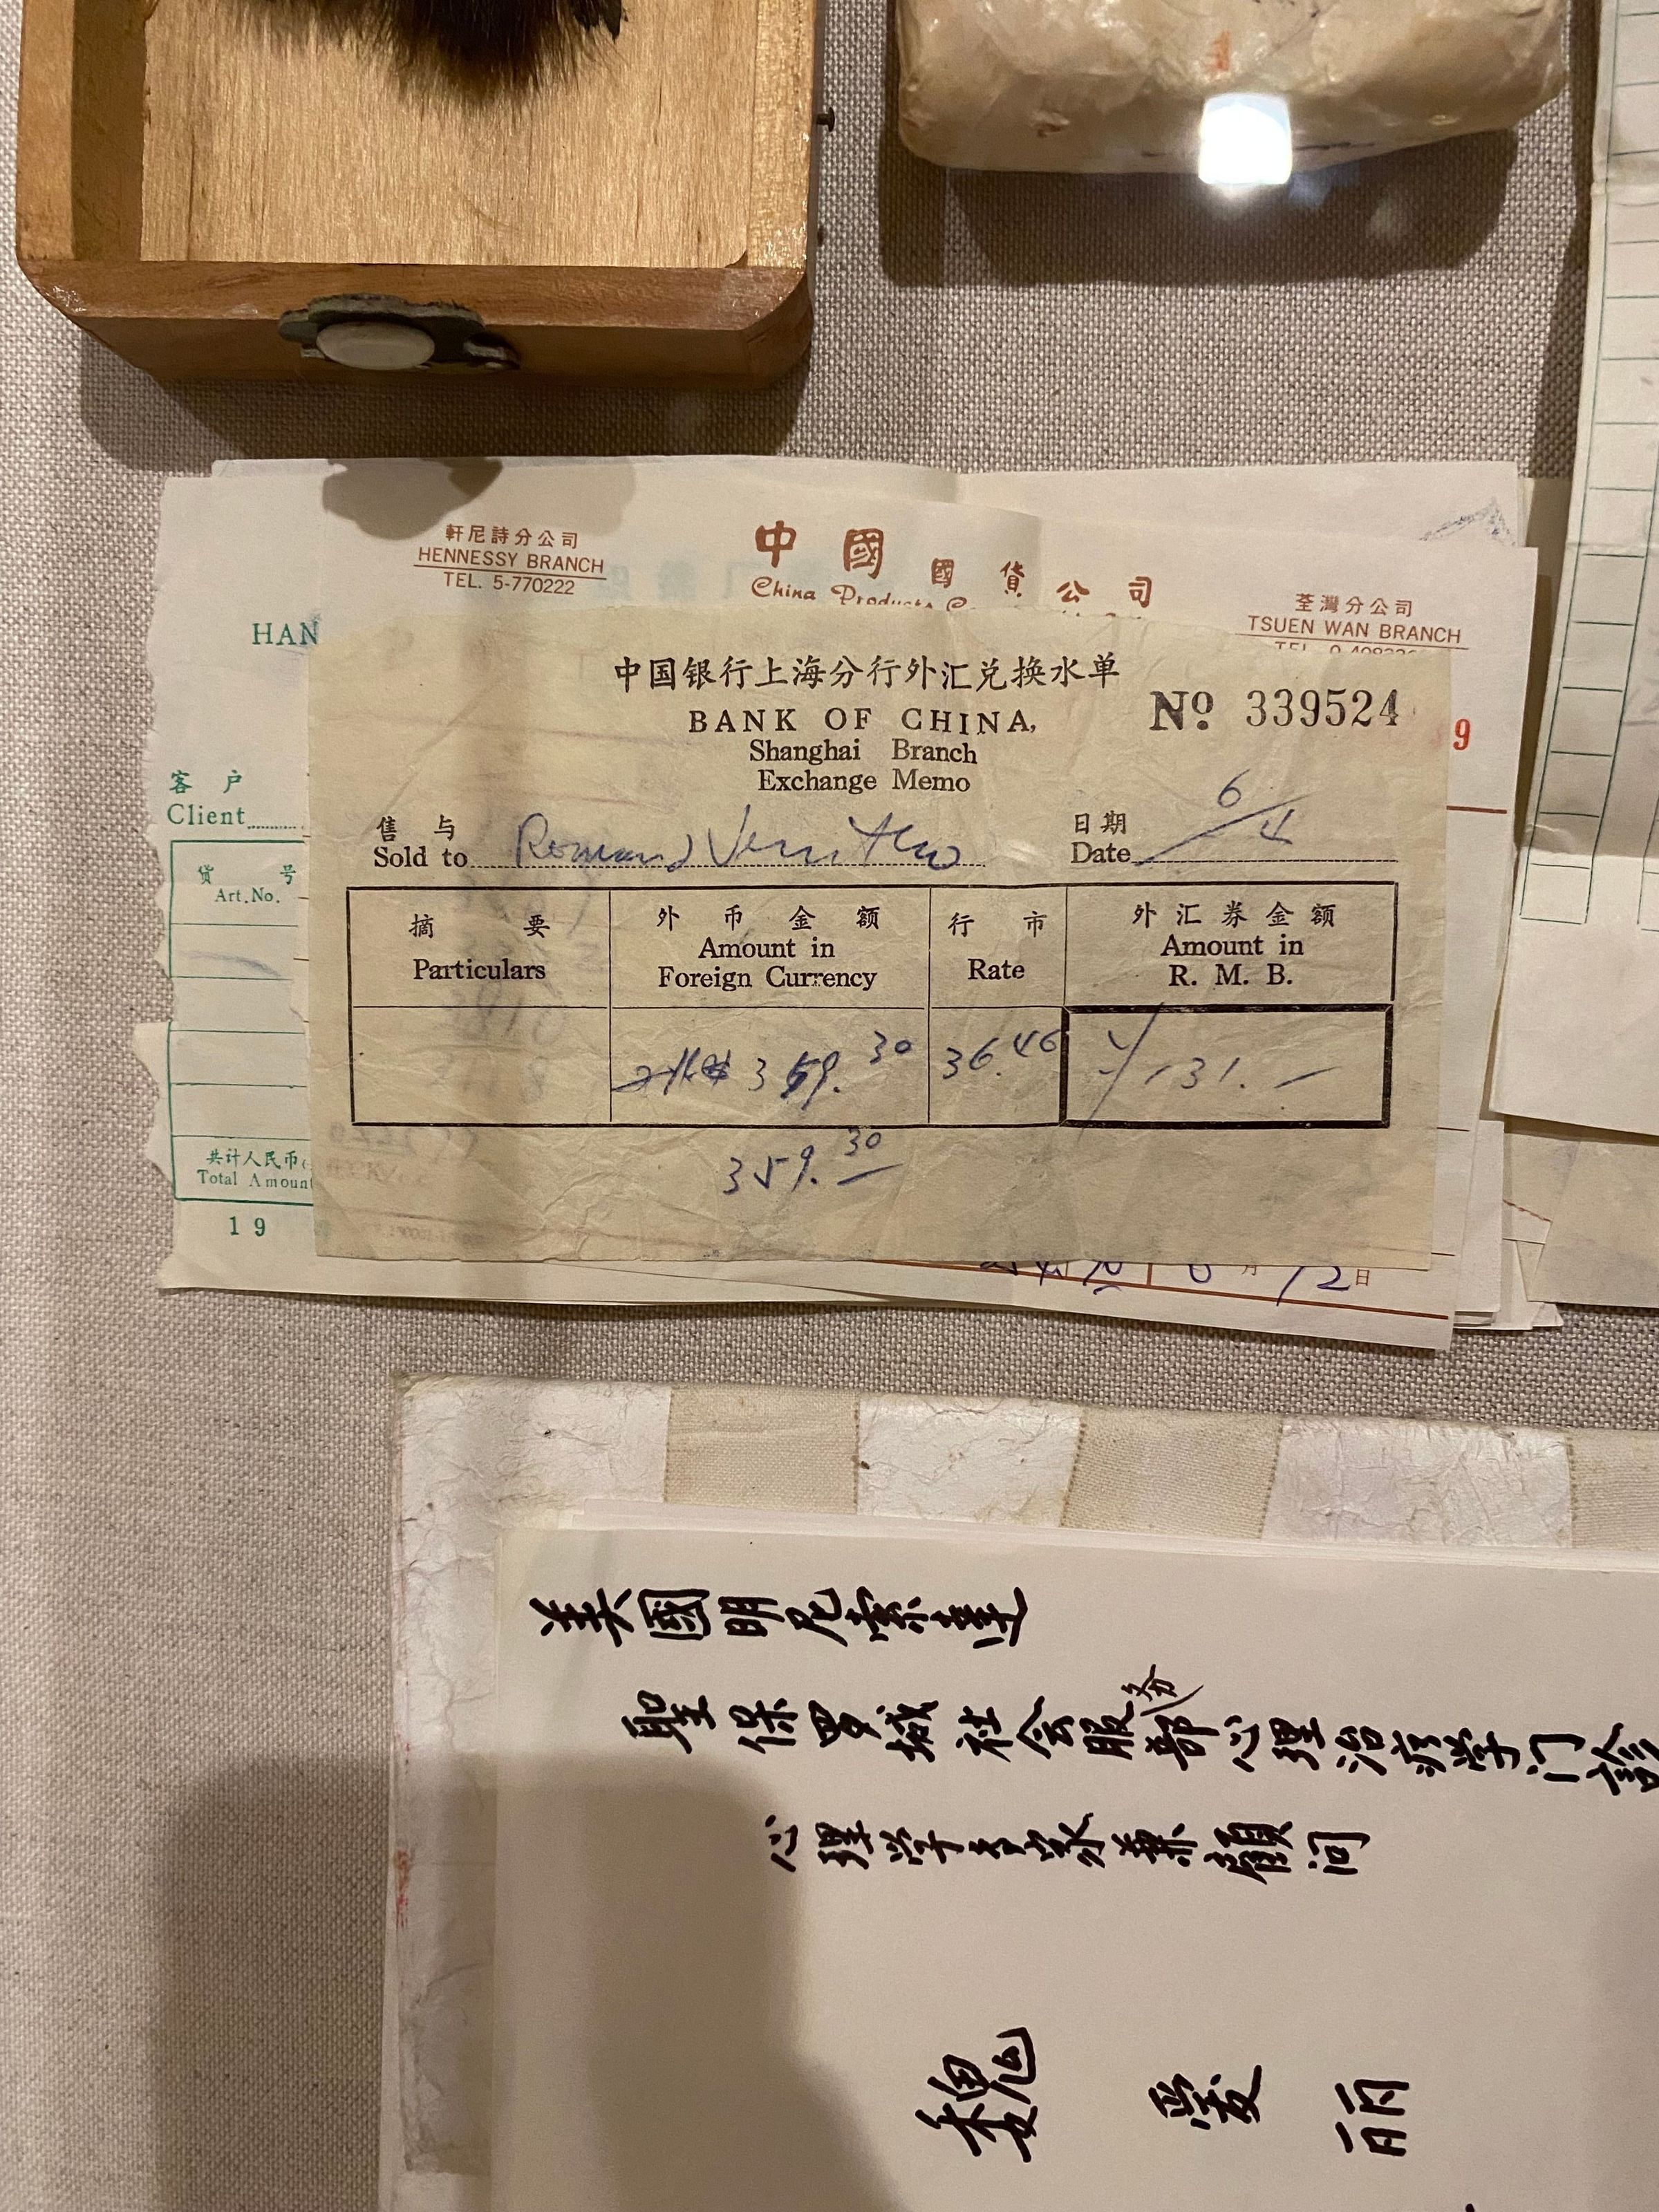 軒尼詩分公司
HENNESSY BRANCH
TEL. 5-770222
中國國貨公司
China Products Co
荃灣分公司
TSUEN WAN BRANCH
HAN
9
中国银行上海分行外汇兑换水单
BANK OF CHINA,
Shanghai Branch
Exchange Memo
Nº 339524
售与
Sold to
日期
Date 6/4
摘要
Particulars
外币金额
Amount in
Foreign Currency
行市
Rate
外汇券金额
Amount in
R. M. B.
359.30
36.46
¥131.—
359.30
客户
Client
货号
Art.No.
共计人民币
Total Amount
19
6月12日
美國明尼索達
聖保罗城社会服务部心理治療学门診
心理学专家兼顧问
魏爱丽